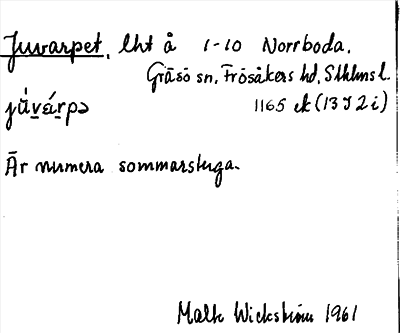 Juvarpet, lht å 1-10 Norrboda.
Gräsö sn, Frösåkers hd, Sthlms l.
1165 ek (13 I 2 i)
Är numera sommarstuga.
Wickström 1961